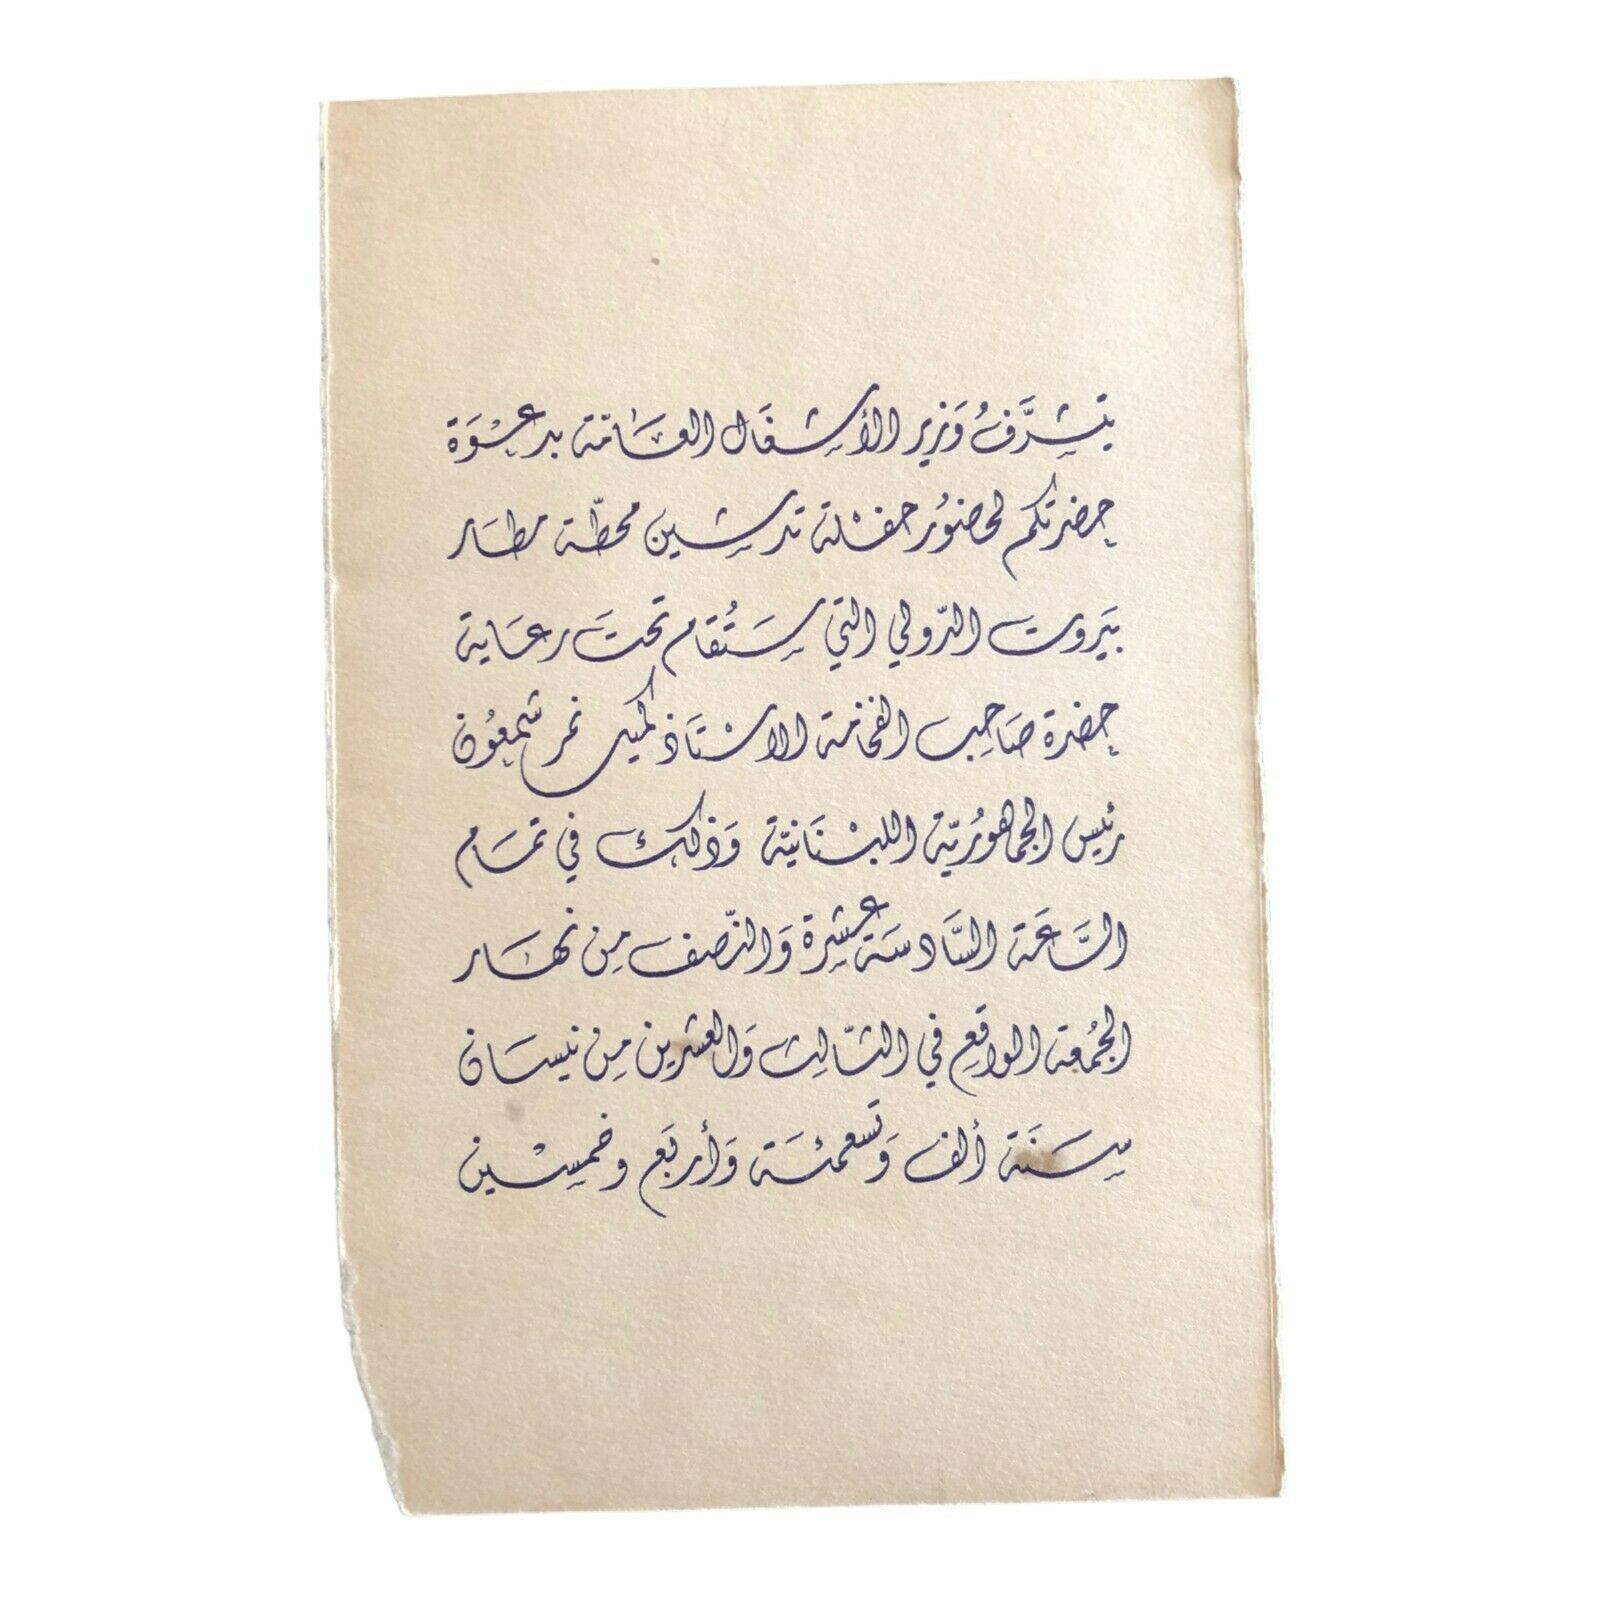 يتشرَّفُ وَزير الأشغَال العَامّة بدعْوَة
حضرتكم لحضوُر حفْلة تدشين محطّة مطَار
بَيروت الدّولي التي سَتُقام تحتَ رعَاية
حضرة صَاحِب الفخامَة الاسْتَاذ كميل نمر شمعوُن
رئيس الجمهوُريّة اللبْنَانيّة وَذلك في تمَام
السَّاعَة السَّادسَة عشرة وَالنّصف مِن نهَار
الجمُعَة الواقِع في الثّالِث وَالعشرين مِن نيسَان
سَنَة ألف وَتسعمئَة وَأربَع وخمسْين